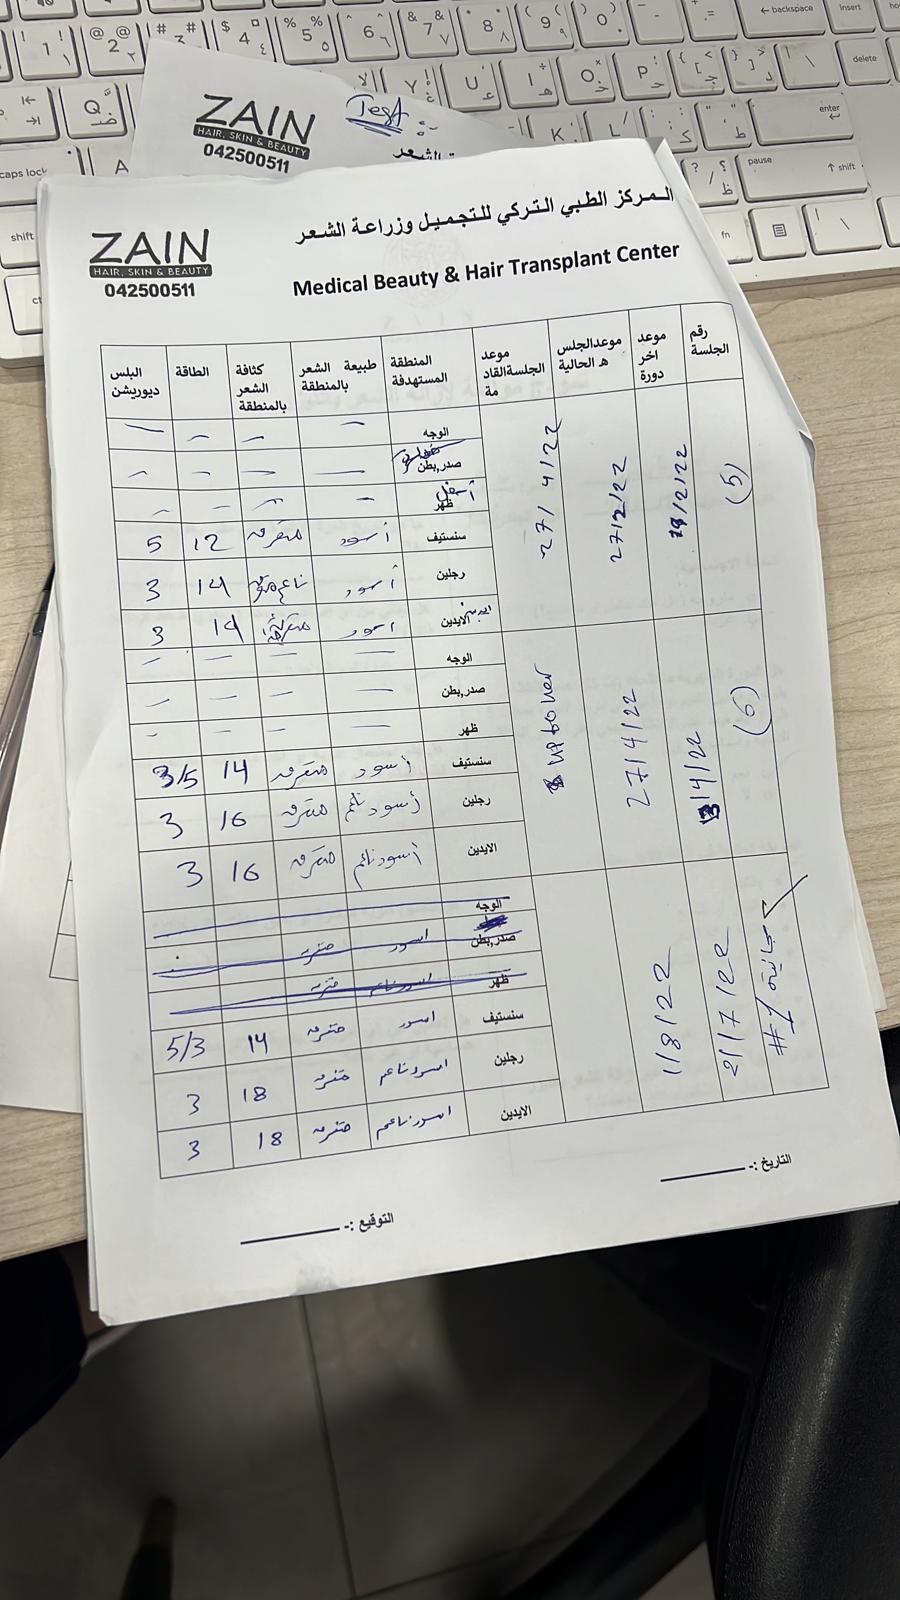 ZAIN
HAIR, SKIN & BEAUTY
042500511
Test
ZAIN
HAIR, SKIN & BEAUTY
042500511
المركز الطبي التركي للتجميل وزراعة الشعر
Medical Beauty & Hair Transplant Center
رقم الجلسة | موعد اخر دورة | موعدالجلس ه الحالية | موعد الجلسةالقاد مة | المنطقة المستهدفة | طبيعة الشعر بالمنطقة | كثافة الشعر بالمنطقة | الطاقة | البلس ديوريشن
(5) | /2/22 | 27/2/22 | 27/4/22
الوجه | — | — | — | —
صدر,بطن | — | — | — | —
ظهر | — | — | — | —
سنستيف | أسود | متفرق | 12 | 5
رجلين | أسود | ناعم متفرق | 14 | 3
الايدين | اسود | 14 | 3
(6) | 13/4/22 | 27/4/22 | up to her
الوجه | — | — | — | —
صدر,بطن | — | — | — | —
ظهر | — | — | — | —
سنستيف | أسود | متفرق | 14 | 3/5
رجلين | أسود ناعم | متفرق | 16 | 3
الايدين | أسود ناعم | متفرق | 16 | 3
#1 مجانية | 21/7/22 | 1/8/22
الوجه
صدر,بطن | اسود | متفرق
ظهر | اسود ناعم | متفرق
سنستيف | اسود | متفرق | 14 | 5/3
رجلين | اسود ناعم | متفرق | 18 | 3
الايدين | اسود ناعم | متفرق | 18 | 3
التاريخ :-
التوقيع :-